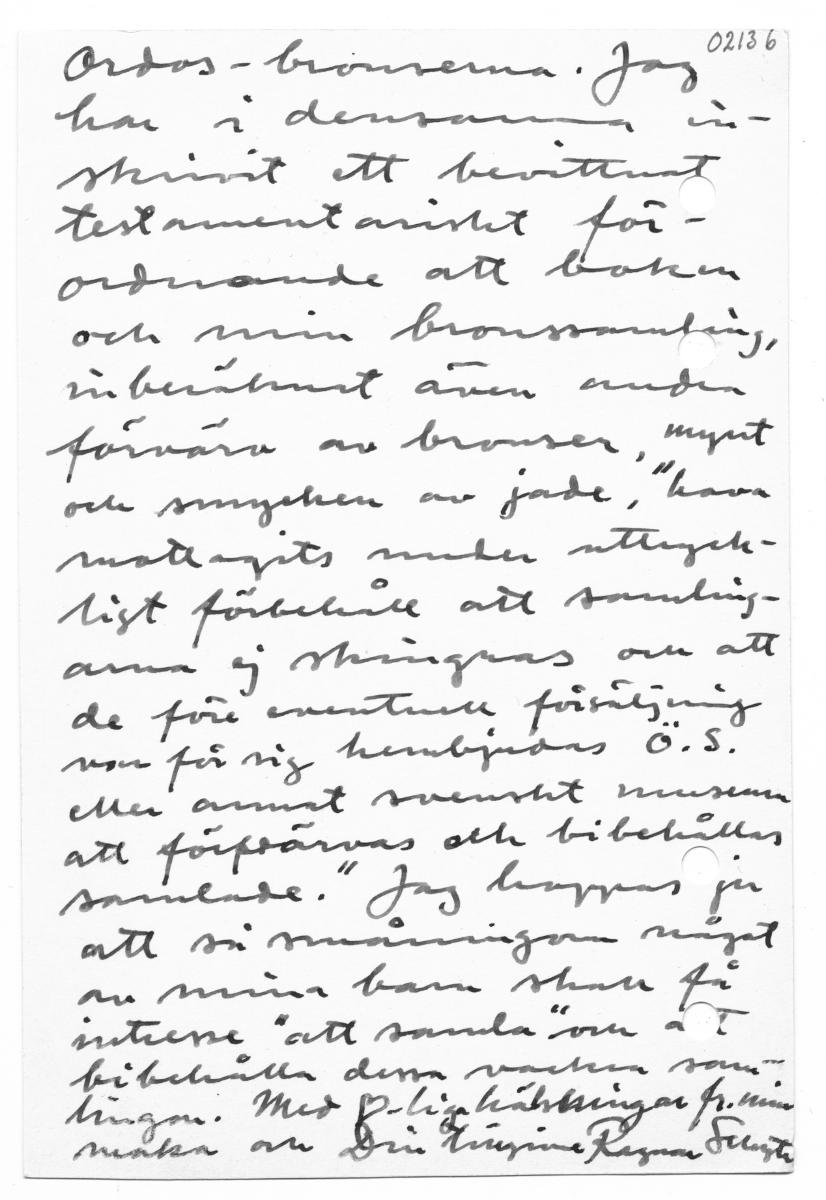 02136
Ordos-bronserna. Jag
har i densamma in-
skrivit ett bevittnat
testamentariskt för-
ordnande att boken
och min bronssamling,
inberäknat även andra
förvärv av bronser, mynt
och smycken av jade, "hava
mottagits under uttryck-
ligt förbehåll att samling-
arna ej skingras och att
de före eventuell försäljning
var för sig hembjudas Ö.S.
eller annat svenskt museum
att förvärvas och bibehållas
samlade." Jag hoppas ju
att så småningom något
av mina barn skall få
intresse "att samla" och att
bibehålla dessa vackra sam-
lingar. Med ♡-liga hälsningar fr. min
maka och Din tillgivne Ragnar